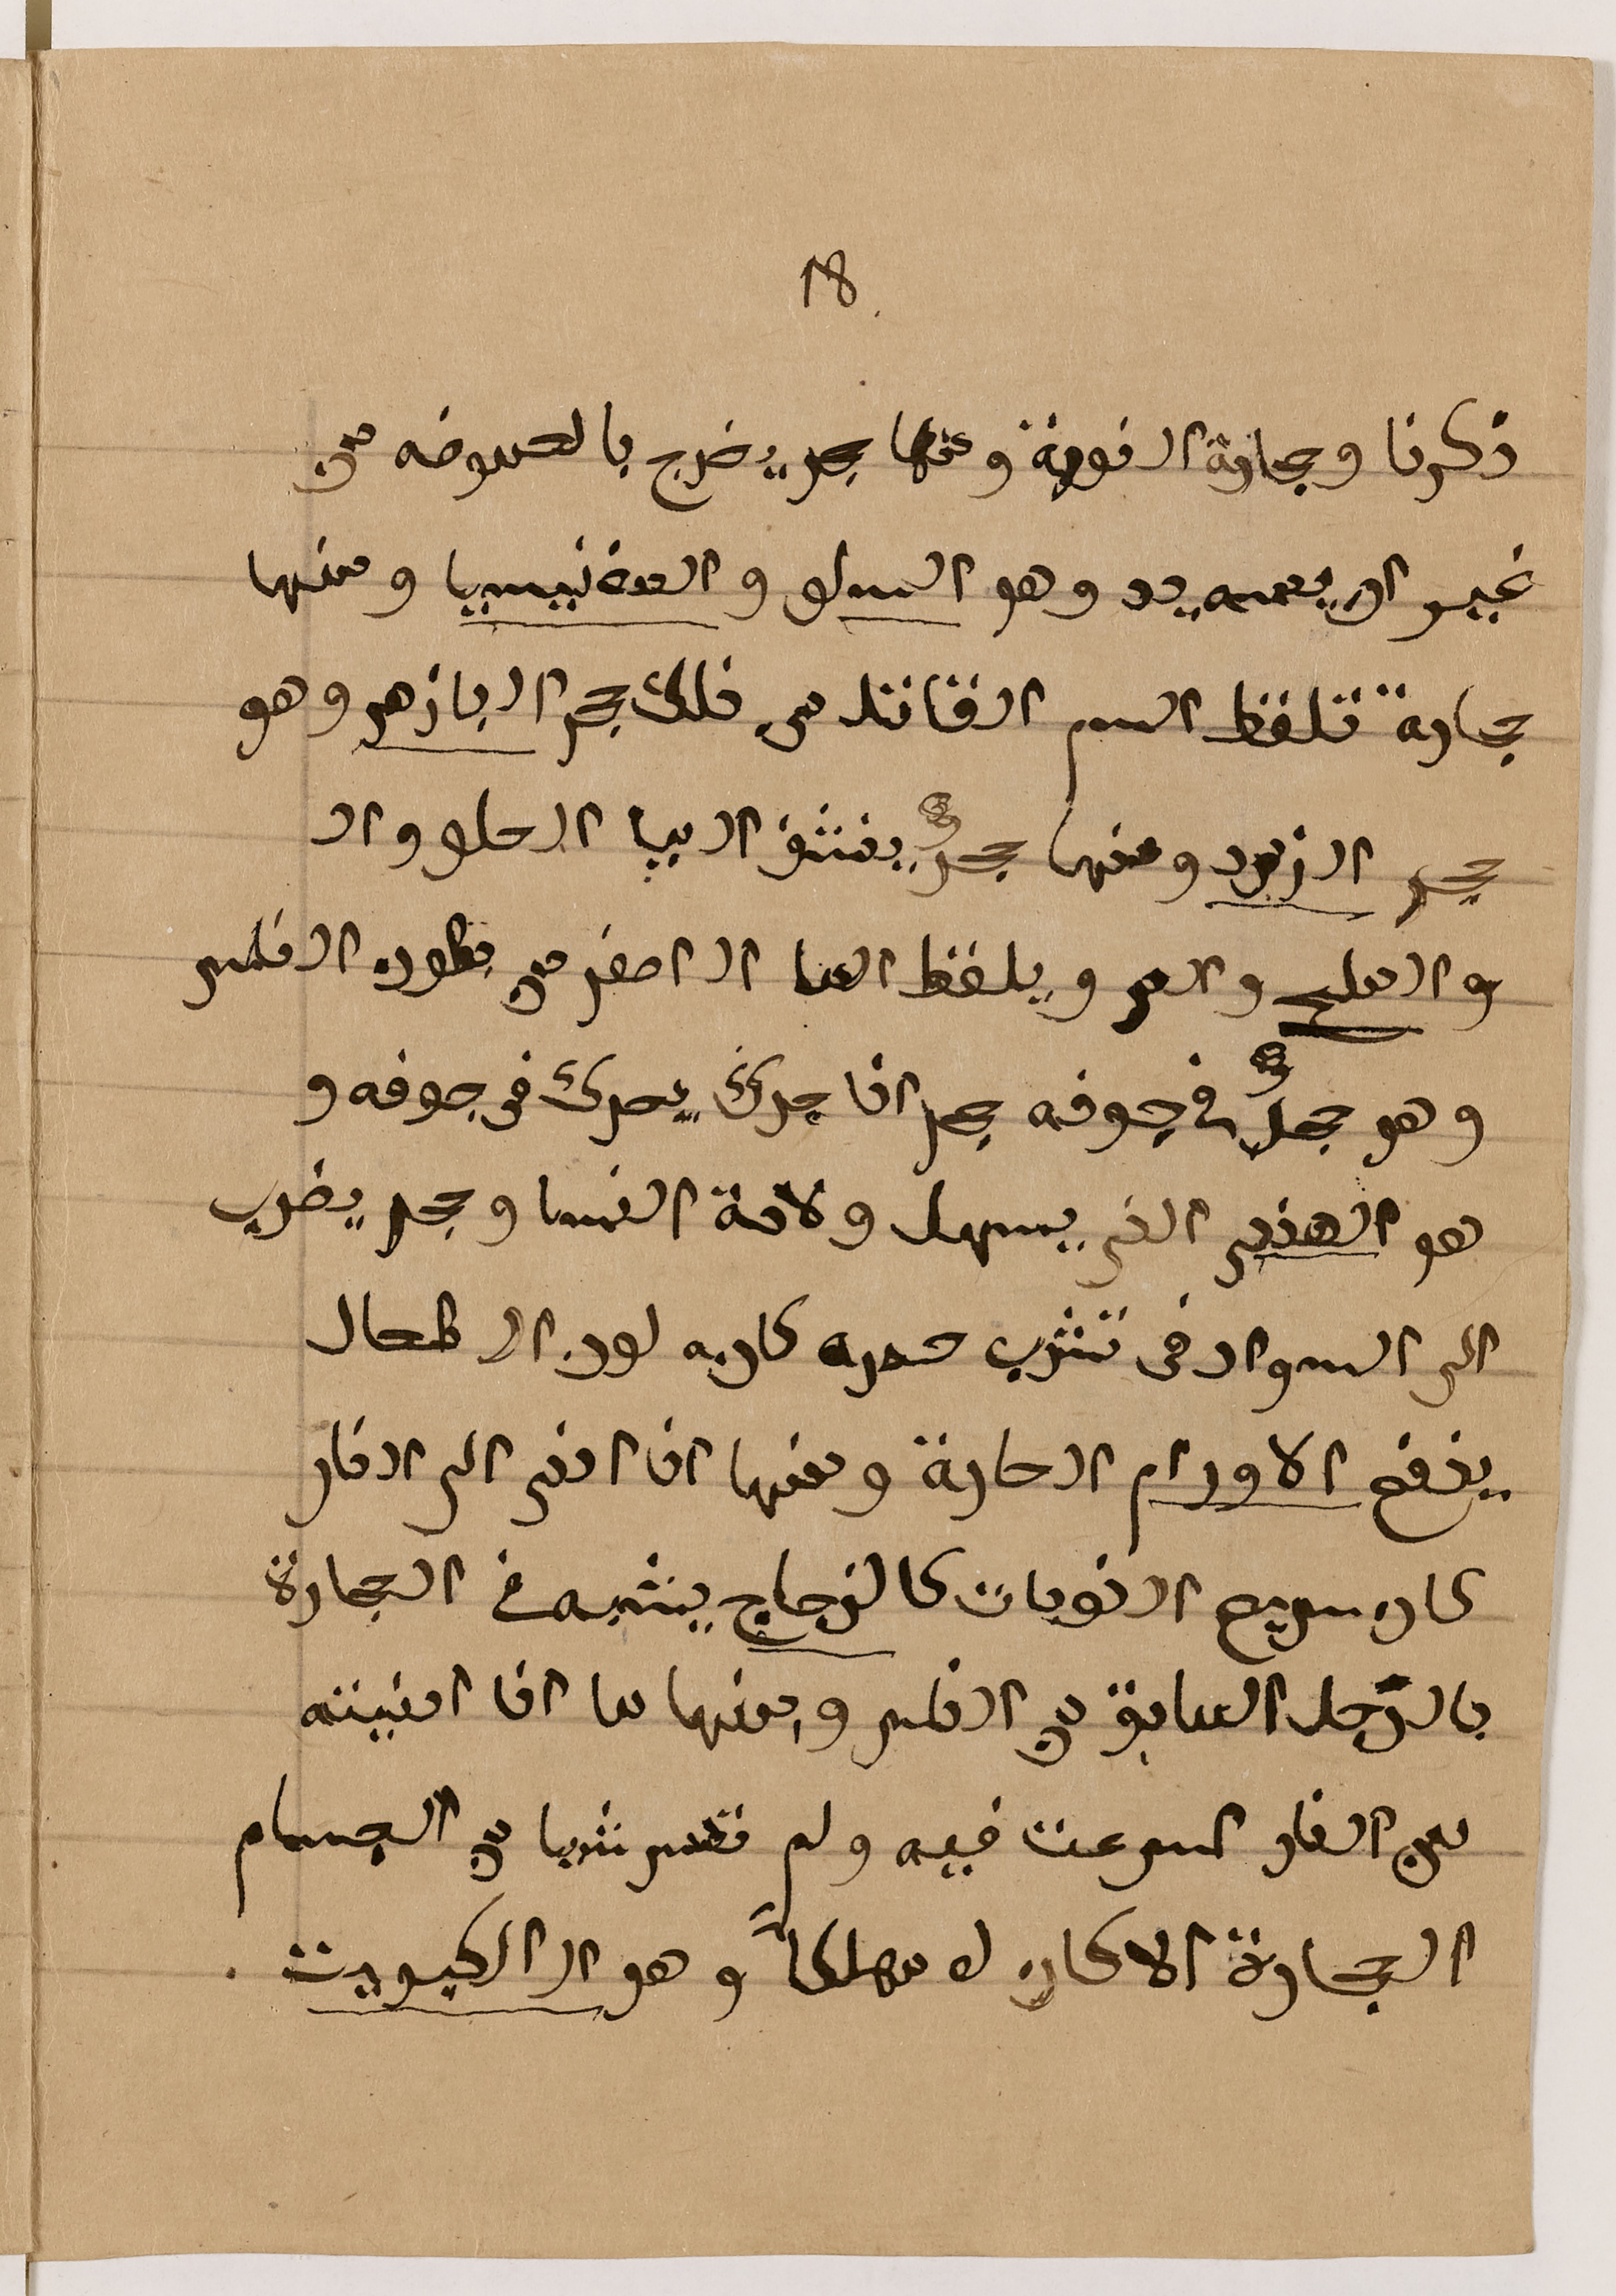 18
ذكرنا وحجارة النورة ومنها حجر يخرج بالحموضه من
غير ان يعمه يد وهو السلو والمغنيسيا ومنها
حجارة تلفظ السم القاتل من ذلك حجر البازهر وهو
حجر الزبرد ومنها حجر ينشف المياا الحلو وال
و المليح والمر ويلفظ الما الاصفر من بطون الناس
وهو حجر في جوفه حجر اذا حرك يحرك في جوفه و
هو الهندي الذي يسهل ولادة النسا وحجر يضرب
الى السواد في تشرب حمره كانه لون الطحال
ينفع الاورام الحارة ومنها اذا ادني الى النار
كان سريع الذوبان كالزجاج يشبه في الحجارة
بالرجل السابق في الناس ومنها ما اذا ادنيته
من النار اسرعت فيه ولم تمس شيا من الجسام
الحجارة الا كان له مهلكاً وهو الكبريت .